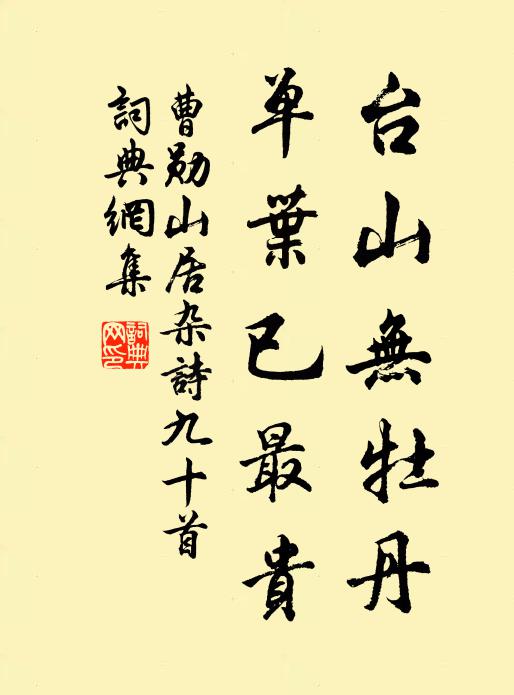 台山無牡丹
单葉已最貴
曹勛山居杂詩九十首
詞典網集
詞典網印